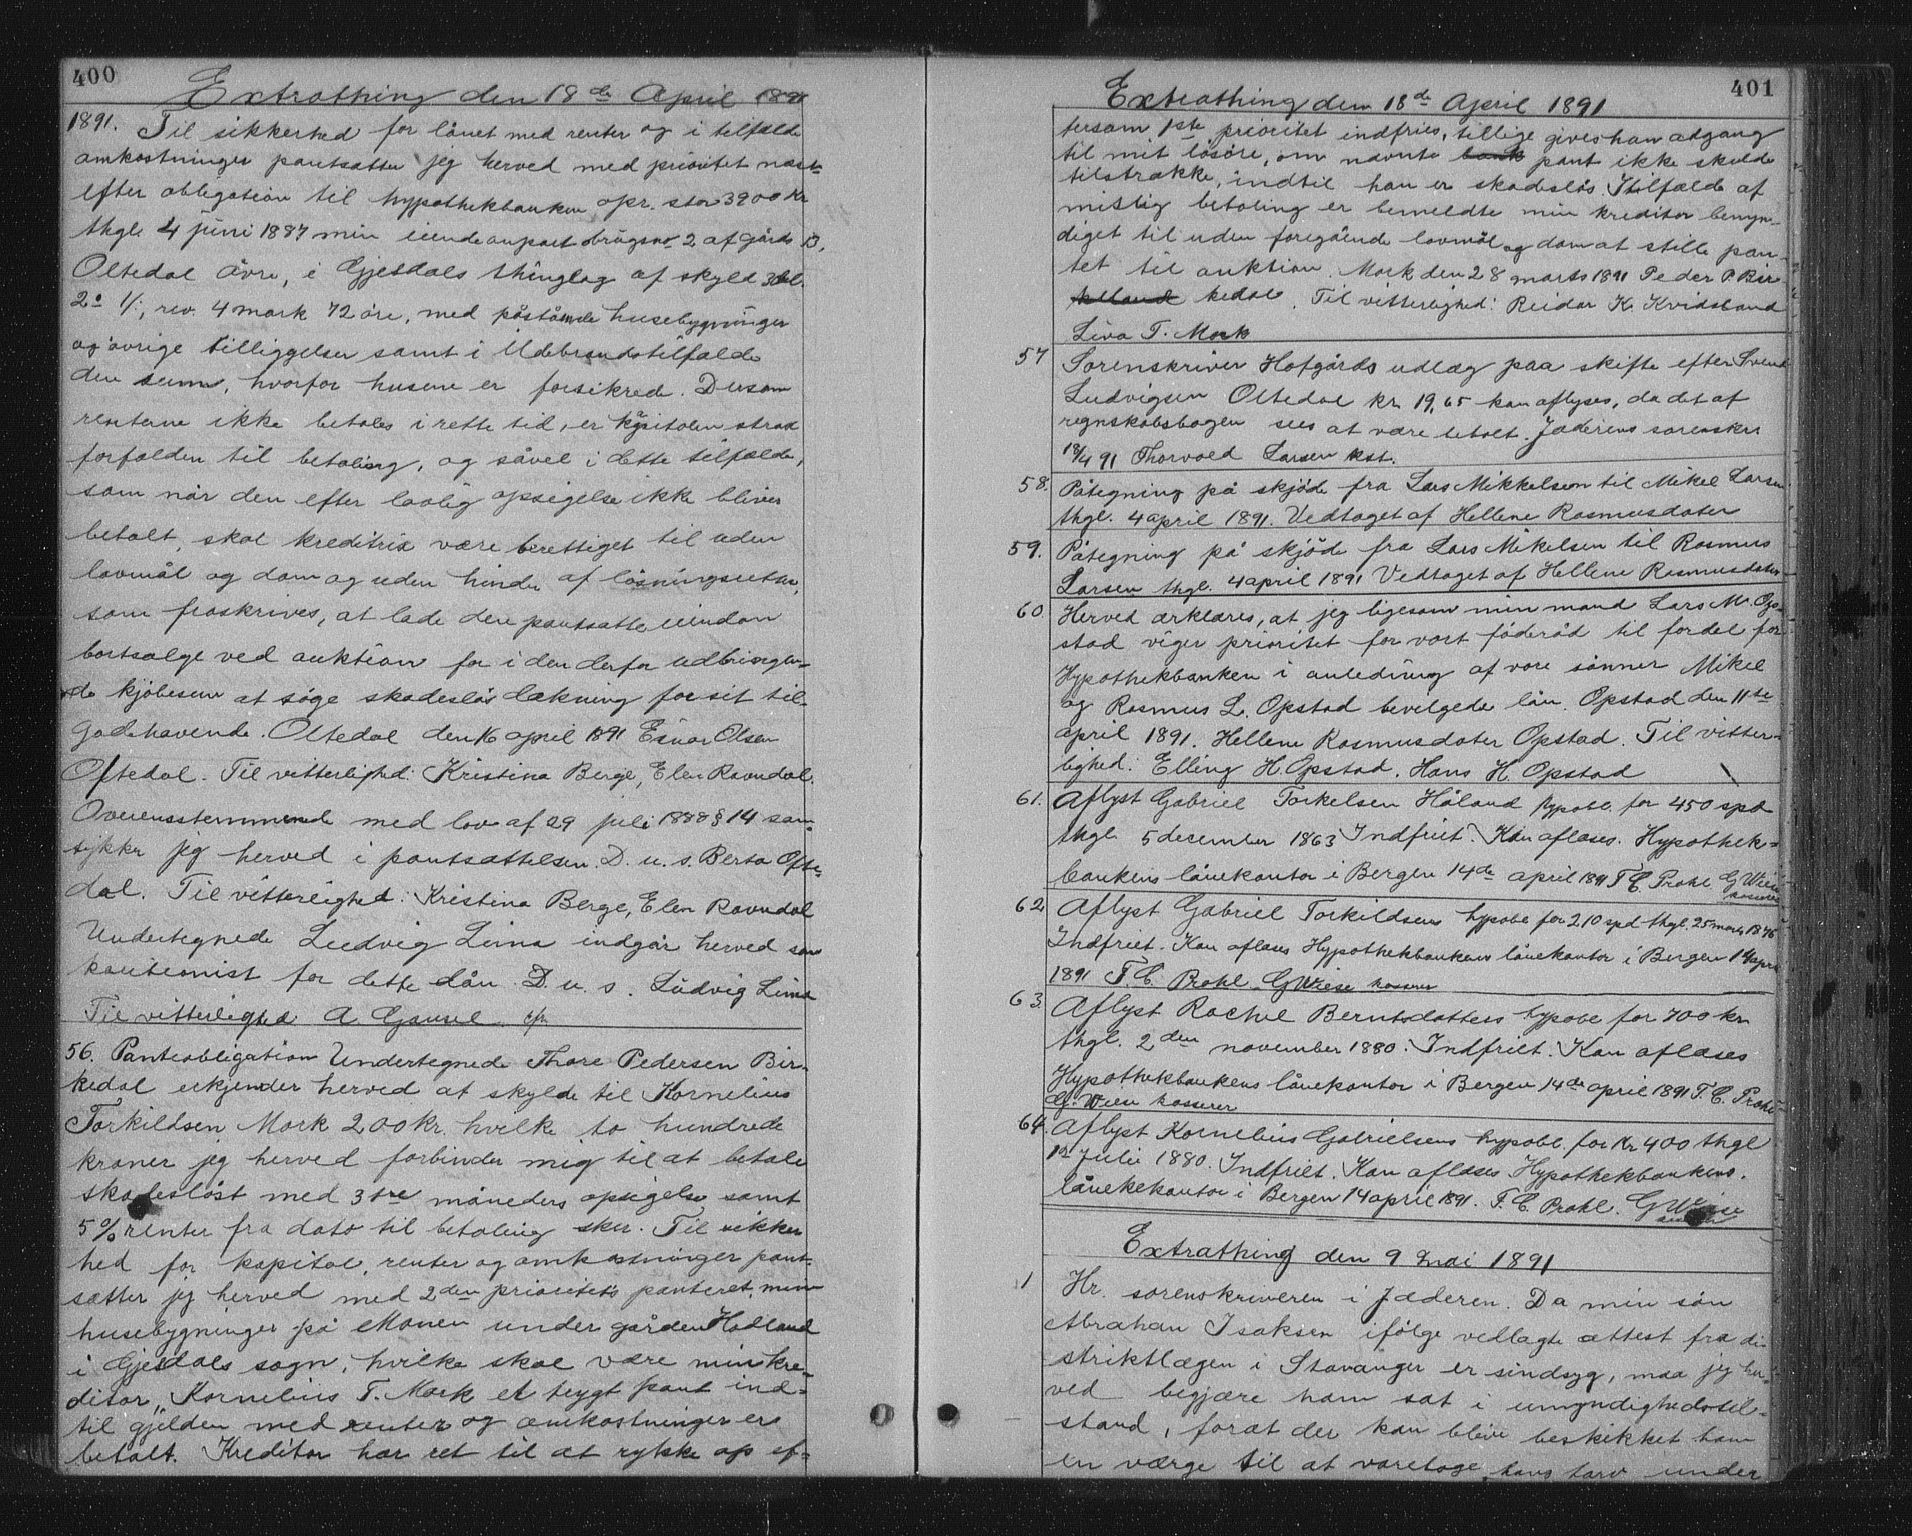 400
Extrathing den 18de April 1891
1891. Til sikkerhed for lånet med renter og i tilfælde
omkostninger pantsatte jeg herved med prioritet næst
efter obligation til hypothekbanken opr. stor 3900 Kr
thgl. 4 juni 1887 min eiendeanpart brugsno 2 af gårds 13,
Oltedal övre, i Gjesdals thinglag af skyld
rev. 4 mark 72 öre, med påstående husebygninger
og övrige tilliggelser samt i Udebrandstilfælde
den sum, hvorfor husene er forsikred. Dersom
renterne ikke betales i rette tid, er kapitalen strax
forfalden til betaling, og såvel i dette tilfælde,
som når den efter lovlig opsigelse ikke bliver
betalt, skal kreditrix være berettiget til uden
lovmål og dom og uden hinder af lösningsretten,
som fraskrives, at lade den pantsatte eiendom
bortsælge ved auktion for i den derfor udbringen-
de kjöbesum at söge skadeslös dækning for sit til-
godehavende. Oltedal den 16 april 1891 Einar Olsen
Oftedal. Til vitterlighed: Kristina Berge, Elen Ravndal.
Overensstemmende med lov af 29 juli 1888 § 14 sam-
tykker jeg herved i pantsættelsen. D. u. s. Berta Ofte-
dal. Til vitterlighed: Kristina Berge, Elen Ravndal
Undertegnede Ludvig Lima indgår herved som
kautionist for dette lån. D. u. s. Ludvig Lima
Til vitterlighed A Gausel.
56. Panteobligation Undertegnede Thore Pedersen Bir-
kedal erkjender herved at skylde til Kornelius
Torkildsen Mork 200 kr. hvilke to hundrede
kroner jeg herved forbinder mig til at betale
skadesløst med 3 tre måneders opsigelse samt
5 % renter fra dato til betaling sker. Til sikker
hed for kapital, renter og omkostninger pant-
sætter jeg herved med 2den prioritets panteret, mine
husebygninger på Monen under gården Hodland
i Gjesdals sogn, hvilke skal være min kre-
ditor, Kornelius T. Mork et trygt pant ind-
til gjelden med renter og omkostninger er
betalt. Kreditor har ret til at rykke op ef-
401
Extrathing den 18de April 1891
tersom 1ste prioritet indfries, tillige gives han adgang
til mit lösöre, om nævnte bank pant ikke skulde
tilstrække, indtil han er skadeslös I tilfælde af
mislig betaling er bemeldte min kreditor bemyn-
diget til uden foregående lovmål og dom at stille pan-
tet til auktion. Mork den 28 marts 1891 Peder P. Bir-
kelland kedal. Til vitterlighed: Reidar K. Kvidsland
Liva T. Mork
57 Sorenskriver Hofgårds udlæg paa skifte efter Svend
Ludvigsen Oltedal kr. 19,65 kan aflyses, da det af
regnskabsbogen sees at være betalt. Jæderens sorenskr.
18/4 91 Thorvald Larsen kst.
58. Påtegning på skjöde fra Lars Mikkelsen til Mikel Larsen
thgl. 4 april 1891. Vedtaget af Hellene Rasmusdater
59. Påtegning på skjöde fra Lars Mikelsen til Rasmus
Larsen thgl. 4 april 1891 Vedtaget af Hellene Rasmusdater
60. Herved erklæres, at jeg ligesom min mand Lars M. Op-
stad viger prioritet for vort föderåd til fordel for
Hypothekbanken i anledning af vore sönner Mikel
og Rasmus L. Opstad bevilgede lån. Opstad den 11te
april 1891. Hellene Rasmusdater Opstad. Til vitter-
lighed: Elling H. Opstad. Hans H. Opstad
61. Aflyst Gabriel Torkelsen Håland hypobl. for 450 spd
thgl. 5 december 1863 Indfriet. Kan aflæses. Hypothek-
bankens lånekontor i Bergen 14de april 1891 T. C. Prahl G Wiese
kasserer
62. Aflyst Gabriel Torkildsens hypobl for 210 spd thgl. 25 marts 1876
Indfriet. Kan aflæses Hypothekbankens lånekontor i Bergen 14 april
1891 T. C. Prahl G Wiese kasserer
63. Aflyst Rachel Berntsdatters hypobl for 700 kr
thgl. 2den november 1880. Indfriet. Kan aflæses
Hypothekbankens lånekontor i Bergen 14de april 1891 T. C. Prahl
G. Wiese kasserer
64. Aflyst Kornelius Gabrielsens hypobl. for Kr 400 thgl
12 Julii 1880. Indfriet. Kan aflæses Hypothekbankens
lånekekontor i Bergen 14 april 1891. T. C. Prahl. G Wiese
kasserer
Extrathing den 9 Mai 1891
1 Hr. sorenskriveren i Jæderen. Da min sön
Abrahan Isaksen ifölge vedlagte attest fra di-
striktlægen i Stavanger er sindsyg, maa jeg her-
ved begjære ham sat i umyndighedstil-
stand, forat der kan blive beskikket ham
en værge til at varetage hans tarv under